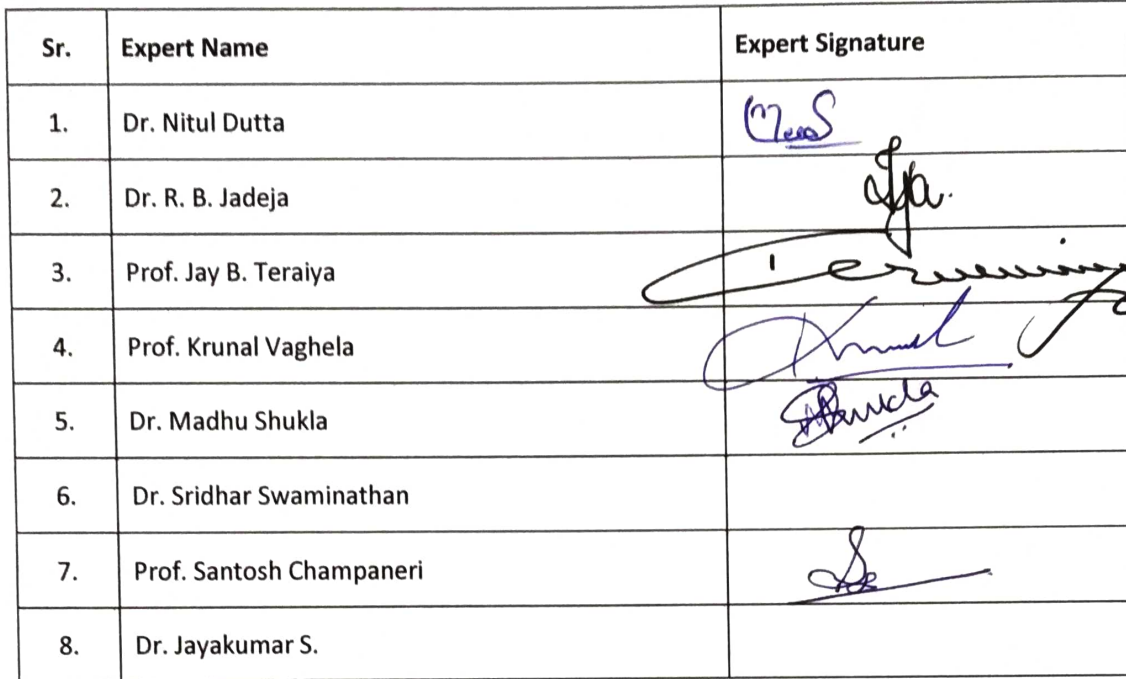 Sr. Expert Name Expert Signature
1. Dr. Nitul Dutta
2. Dr. R. B. Jadeja
3. Prof. Jay B. Teraiya
4. Prof. Krunal Vaghela
5. Dr. Madhu Shukla
6. Dr. Sridhar Swaminathan
7. Prof. Santosh Champaneri
8. Dr. Jayakumar S.